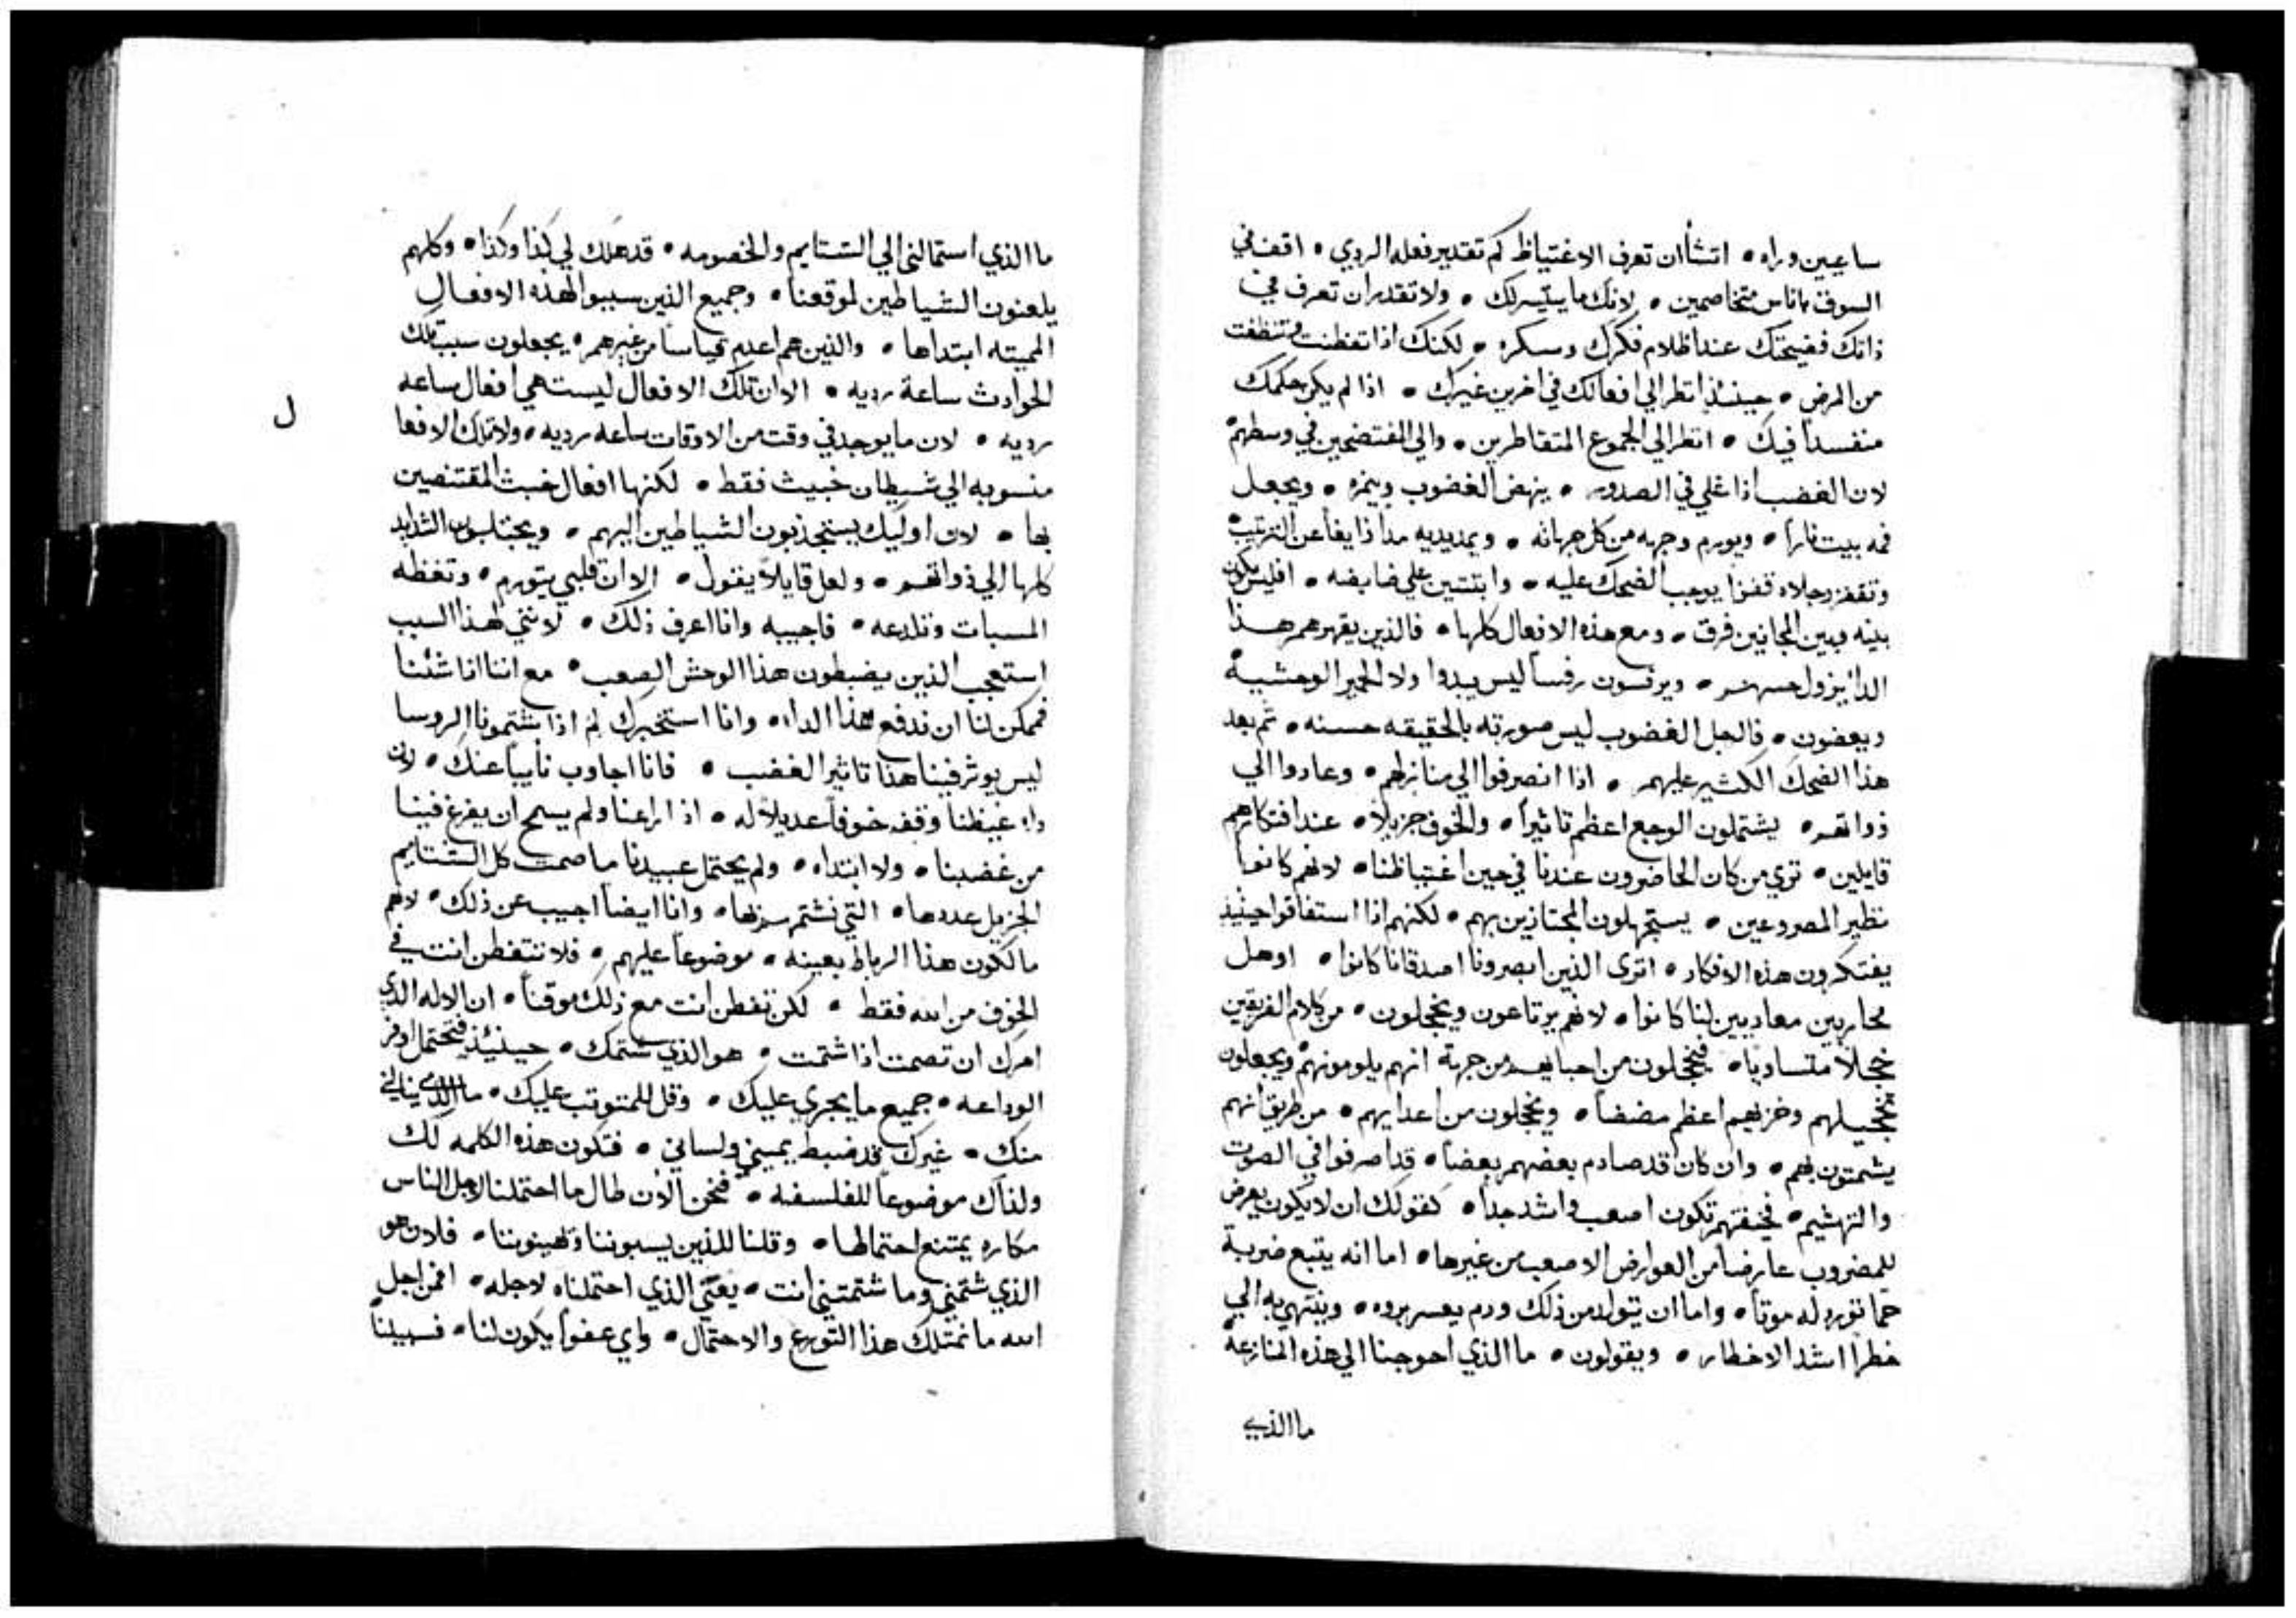 ساعيين وراه • اتشأ ان تعرف الاغتياظ كم تقدير فعله الردي • اقف في
السوق باناس متخاصمين • لانك ما يتيسر لك • ولا تقدر ان تعرف في
ذاتك فضيحتك عند اظلام فكرك وسكره • لكنك اذا تفطنت وتنظفت
من المرض • حينئذ انظر الي افعالك في اخرين غيرك • اذا لم يكن حكمك
منفسداً فيك • انظر الي الجموع المتقاطرين • والي المفتضحين في وسطهم
لان الغضب اذا غلي في الصدور • ينهض الغضوب وينمره • ويجعل
فمه بيت نار • ويورم وجهه من كل جهاته • ويمد يديه مداً زايغاً عن الترتيب
وتقفز رجلاه قفزا يوجب الضحك عليه • وا يتثبن علي ضابضه • افليس يكون
بينه وبين المجانين فرق • ومع هذه الافعال كلها • فالذين يقهرهم هذا
الدا يزول حسهم • ويرفسون رفساً ليس يبدوا ولا الحمير الوحشية
ويعضون • فالرجل الغضوب ليس صورته بالحقيقه حسنه • ثم بعد
هذا الضحك الكثير عليهم • اذا انصرفوا الي منازلهم • وعادوا الي
ذواتهم • يشتملون الوجع اعظم تاثيراً • والخوف جزيلاً • عند افتكارهم
قايلين • تري من كان الحاضرون عندنا في حين اغتياظنا • لانهم كانوا
نظير المصروعين • يستجهلون المجتازين بهم • لكنهم اذا استفاقوا حينيذ
يفتكرون هذه الافكار • اترى الذين ابصرونا اصدقانا كانوا • او هل
محاربين معاديين لنا كانوا • لانهم يرتاعون ويخجلون • من كلام الفريقين
خجلاً متساوياً • فيخجلون من احبايهم من جهة انهم يلومونهم ويجعلون
تخجيلهم وخزيهم اعظم مضضاً • ويخجلون من اعدايهم • من طريق انهم
يشمتون بهم • وان كان قد صادم بعضهم بعضاً • قد اصرفوا في الصوت
والتهشيم • فخيفتهم تكون اصعب واشد جداً • كقولك ان لا يكون يعرض
للمضروب عارضاً من العوارض الاصعب من غيرها • اما انه يتبع ضربة
حما تورد له موتاً • واما ان يتولد من ذلك ورم يعسر بروه • وينتهي به الي
خطراً اشد الاخطار • ويقولون • ما الذي احوجنا الي هذه المنازعة
ما الذي
ما الذي استمالني الي الشتايم والخصومه • قد هلك لي كذا وكذا • وكلهم
يلعنون الشياطين لموقعنا • وجميع الذين سببوا لهذه الافعال
المميته ابتداها • والذين هم اعدم قياساً من غيرهم • يجعلون سبب تلك
الحوادث ساعة رديه • الا ان تلك الافعال ليست هي افعال ساعه
رديه • لان ما يوجد في وقت من الاوقات ساعه رديه • ولا تلك الافعا
ل
منسوبه الي شيطان خبيث فقط • لكنها افعال خبث المقتنصين
بها • لان اوليك يستجذبون الشياطين اليهم • ويجتلبون الشدايد
كلها الي ذواتهم • ولعل قايلاً يقول • الا ان قلبي يتورم • وتغظه
المسبات وتلدغه • فاجيبه وانا اعرف ذلك • لانني لهذا السبب
استعجب الذين يضبطون هذا الوحش الصعب • مع اننا اذا شئنا
فممكن لنا ان ندفع هذا الداء • وانا استخبرك لم اذا شتمونا الروسا
ليس يوثر فينا هذا تاثير الغضب • فانا اجاوب نايباً عنك • لان
داء غيظنا وقفه خوفاً عديلاً له • اذ اراعنا ولم يسمح ان يفرغ فينا
من غضبنا • ولا ابتداه • ولم يحتمل عبيدنا ما صمت كل الشتايم
الجزيل عددها • التي نشتمهم بها • وانا ايضاً اجيب عن ذلك • لانهم
ما لكون هذا الرباط بعينه • موضوعاً عليهم • فلا تتفطن انت في
الخوف من الله فقط • لكن تفطن انت مع ذلك موقناً • ان الاله الذي
امرك ان تصمت اذا شتمت • هو الذي شتمك • حينئذ فتحتمل اوفر
الوداعه • جميع ما يجري عليك • وقل للمتوثب عليك • ما الذي ينالني
منك • غيرك قد ضبط يميني ولساني • فتكون هذه الكلمه لك
ولذاك موضوعاً للفلسفه • فنحن الان طال ما احتملنا لاجل الناس
مكاره يمتنع احتمالها • وقلنا للذين يسبوننا ويهينوننا • فلان هو
الذي شتمني وما شتمتني انت • يعني الذي احتملناه لاجله • افمن اجل
الله ما نمتلك هذا التورع والاحتمال • واي عفوا يكون لنا • فسبيلنا